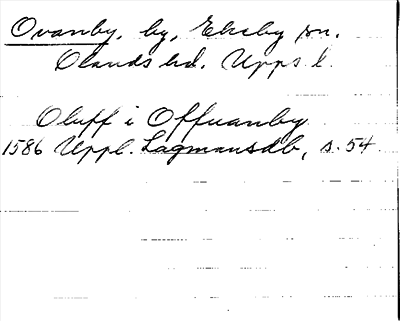 Ovanby, by, Ekeby sn.
Olands hd. Upps. l.
Oluff i Offuanby
1586 Uppl. Lagmansdb, s. 54